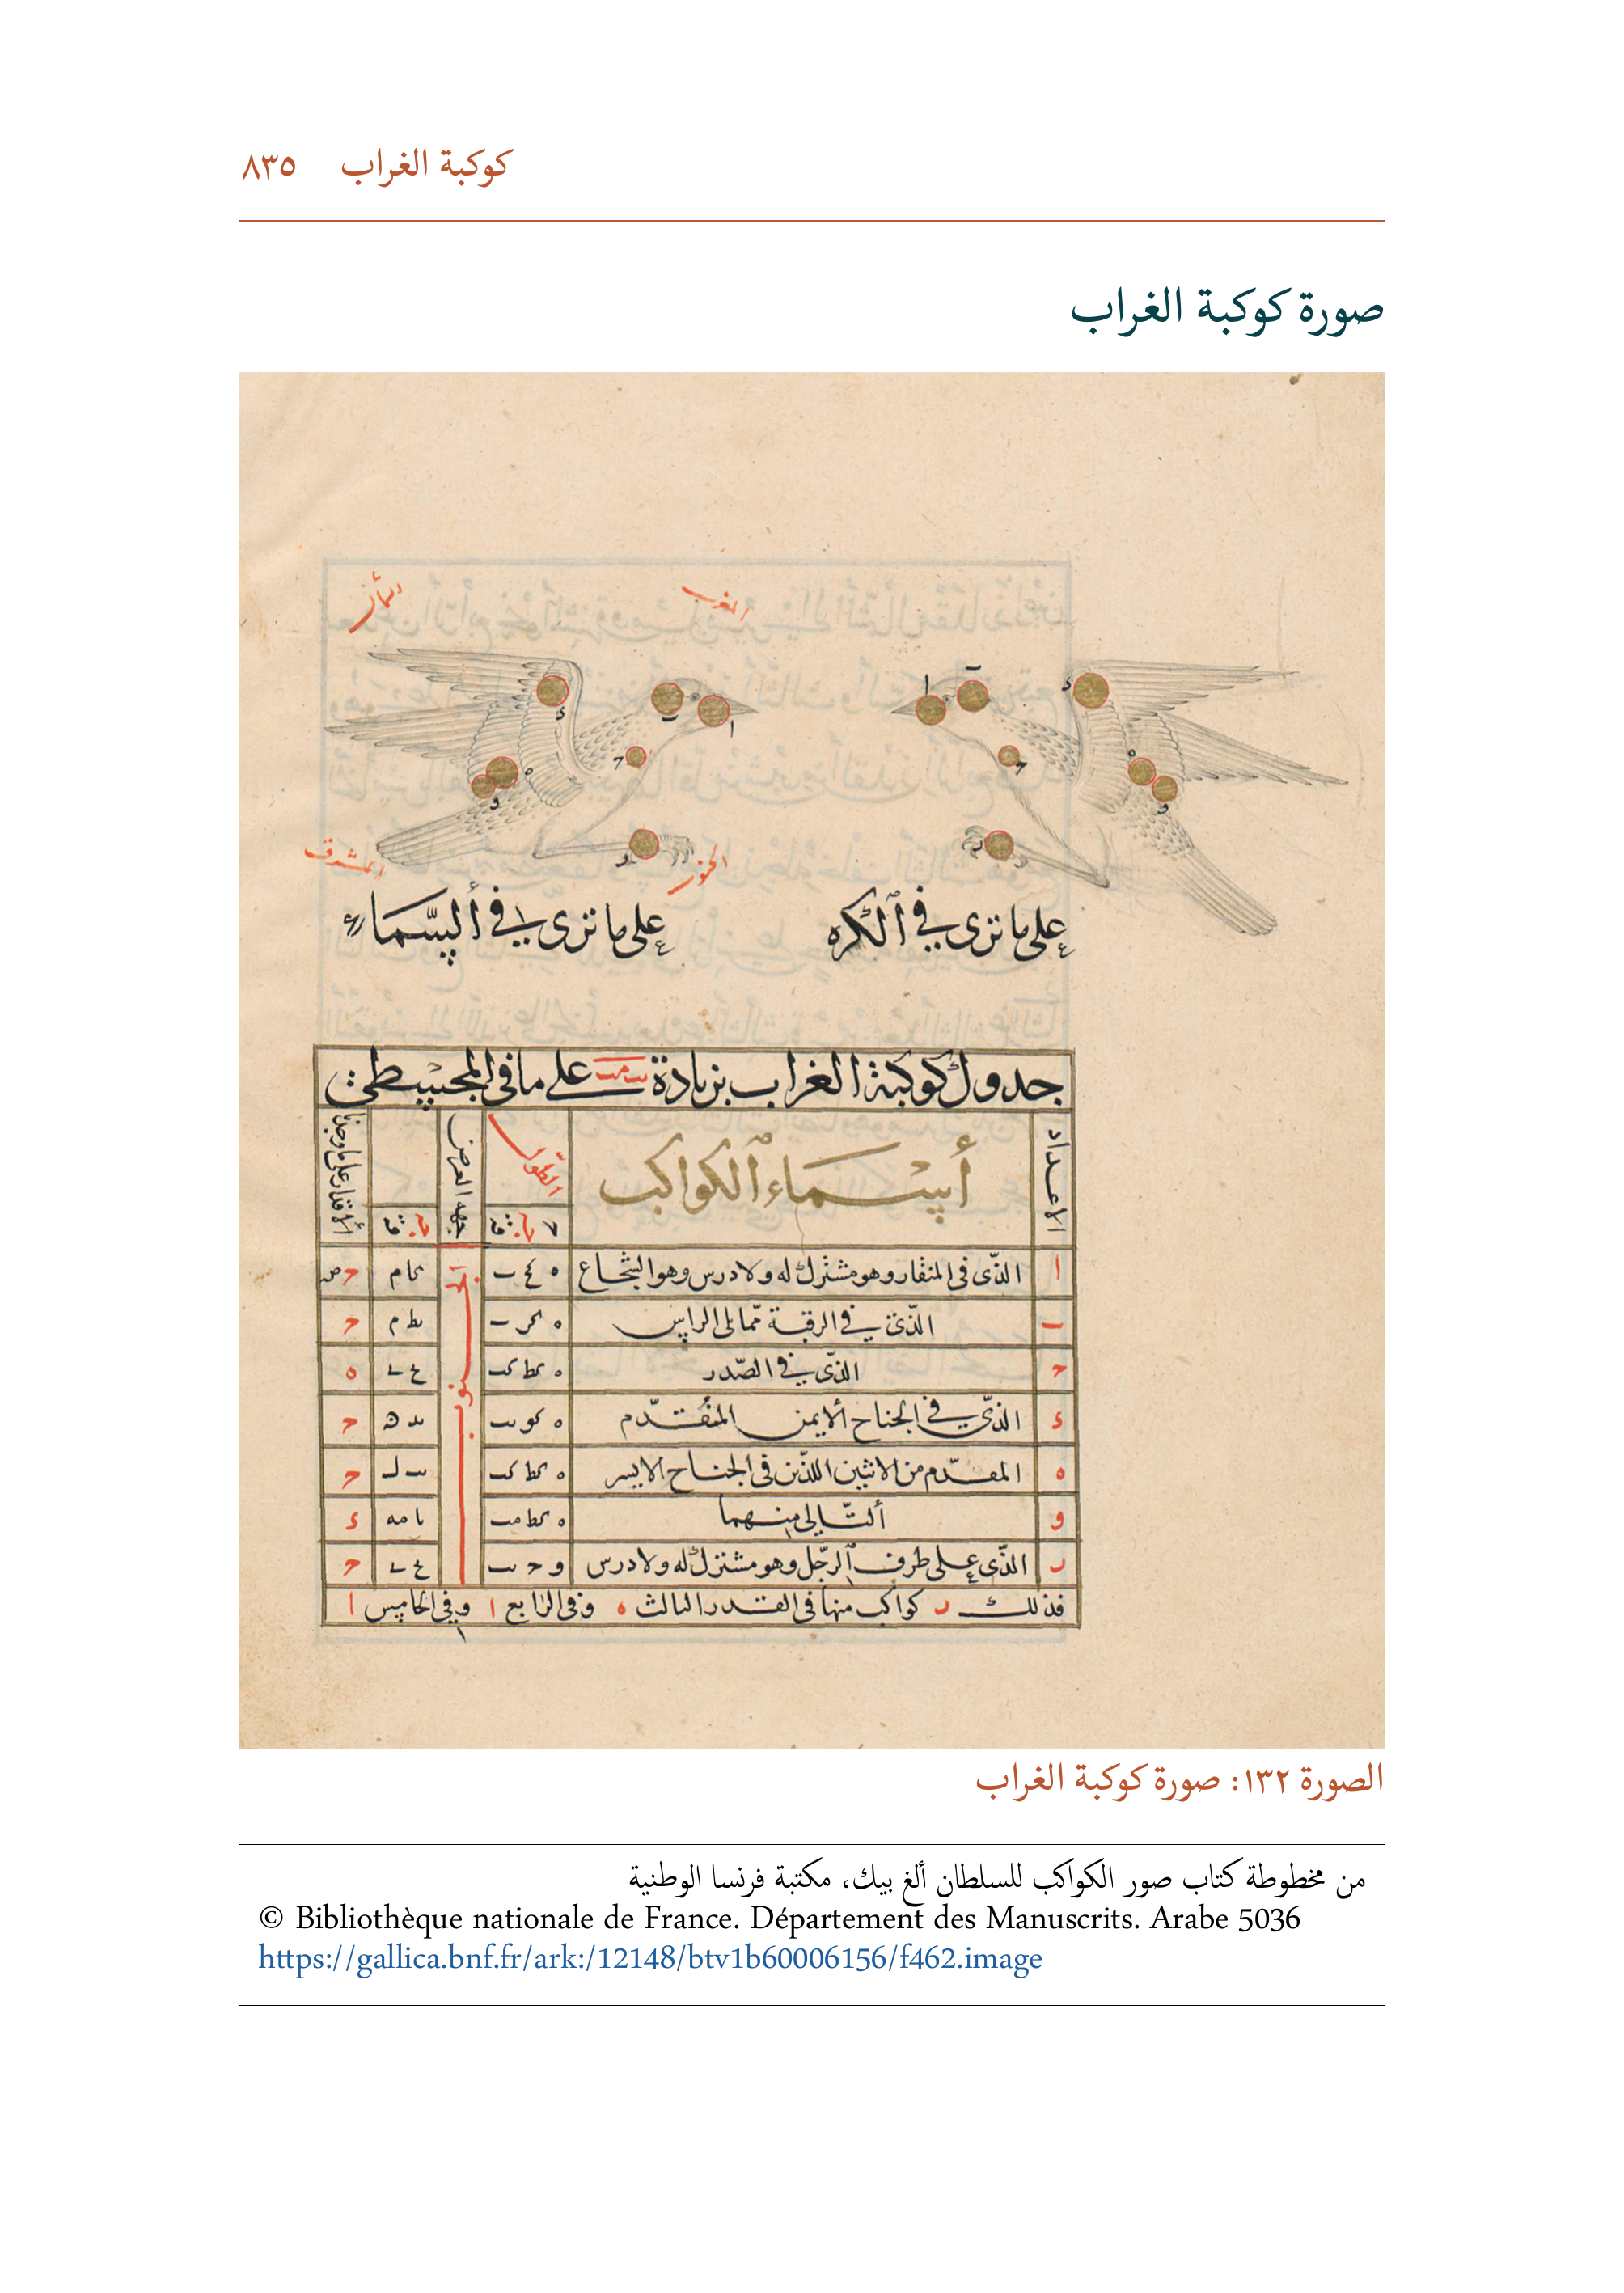 كوكبة الغراب ٨٣٥
صورة كوكبة الغراب
الغرب
المشرق
الجنوب
على ما ترى في الكره
على ما ترى في السماء
جدول كوكبة الغراب بزيادة على ما في المجسطي
الاعداد
أسماء الكواكب
الطول
جهه العرض
الأقدار على ما وجدنا
ا الذي في المنقار وهو مشترك له ولادرس وهو الشجاع
ب الذي في الرقبة مما يلى الراس
ح الذي في الصدر
د الذي في الجناح الايمن المتقدم
ه المتقدم من الاثنين اللذين فى الجناح الايسر
و التالي منهما
ر الذي على طرف الرجل وهو مشترك له ولادرس
الجنوب
فذلك ر كواكب منها فى القدر الثالث ه وفى الرابع ا وفي الخامس ا
الصورة ١٣٢: صورة كوكبة الغراب
من مخطوطة كتاب صور الكواكب للسلطان ألغ بيك، مكتبة فرنسا الوطنية
© Bibliothèque nationale de France. Département des Manuscrits. Arabe 5036
https://gallica.bnf.fr/ark:/12148/btv1b60006156/f462.image